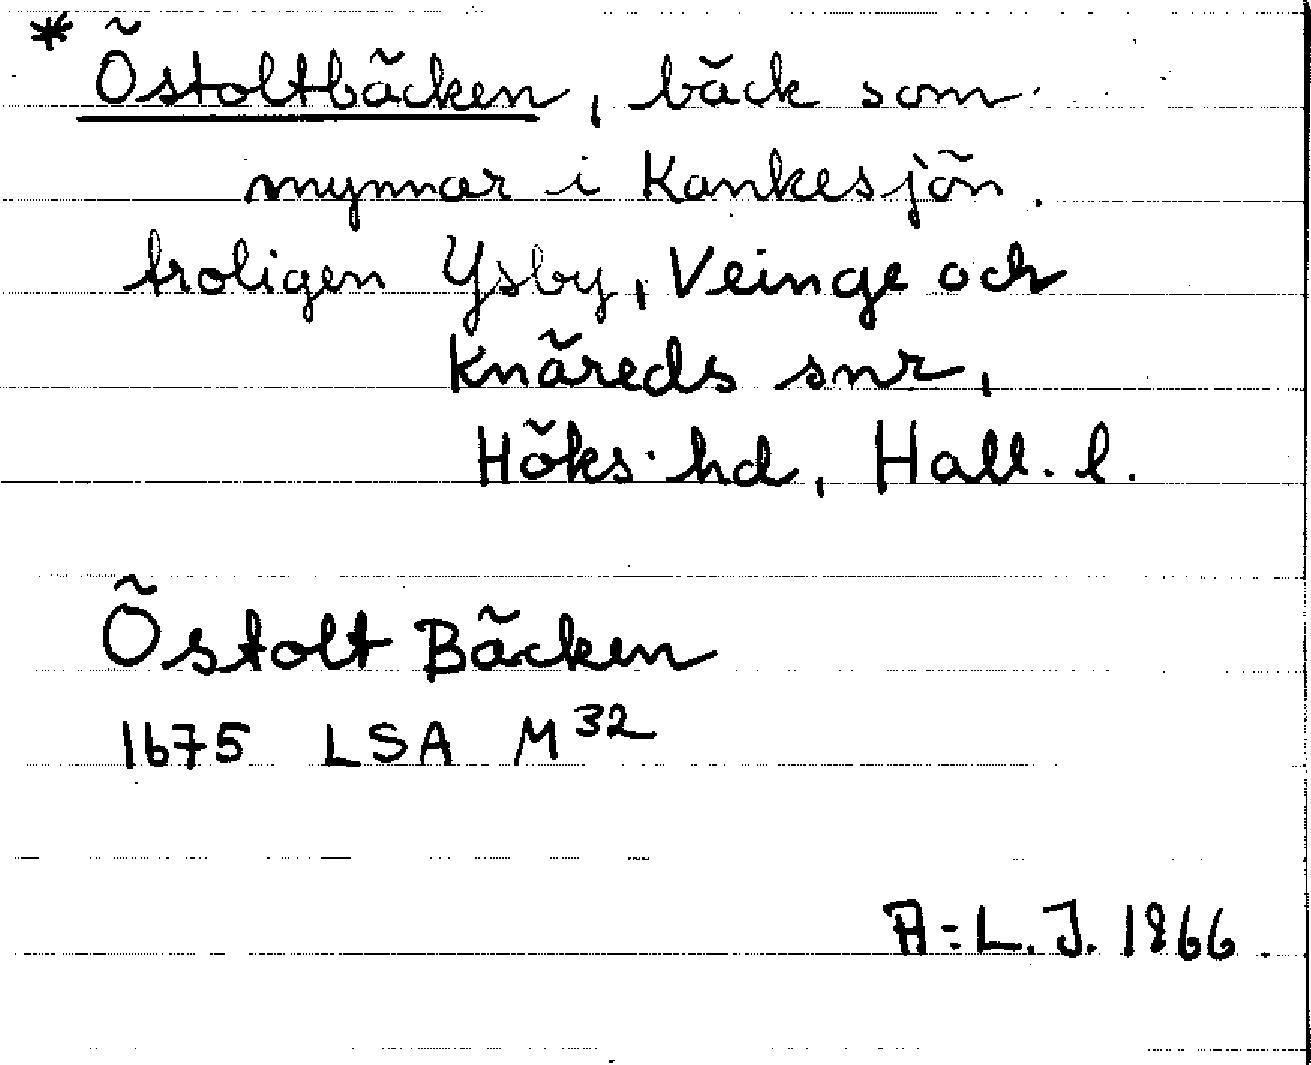 * Östoltbäcken, bäck som
mynnar i Kankesjön.
troligen Ysby, Veinge och
Knäreds snr,
Höks hd, Hall. l.
Östolt Bäcken
1675 LSA M³²
A-L.J. 1966.